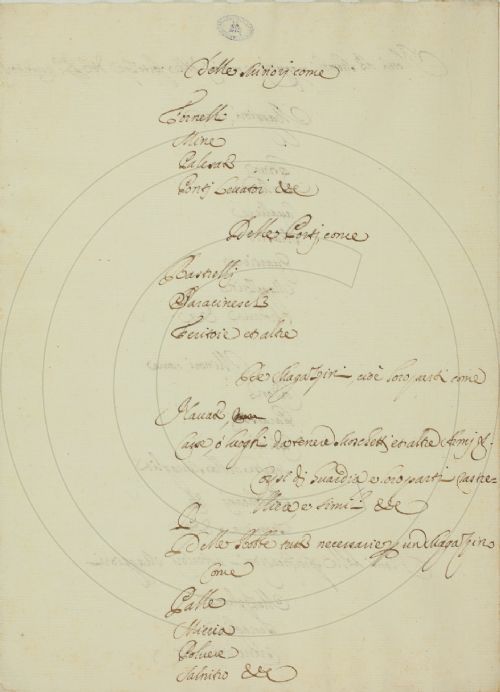 Delle minori come
Fornelli
Mine
Palesate
Ponti Levatoi &c
Delle Porti, come
Rastrelli
Saracinesche
Feritoie et altre
De Magazini cioè loro parti come
case, o luoghi da tenere Moschetti et altre Armi &
Corpi di Guardia e loro parti
e simili &c
Delle robbe tutte necessarie p un Magazino
Come
Palle
Miccia
Polvere
Salnitro &c